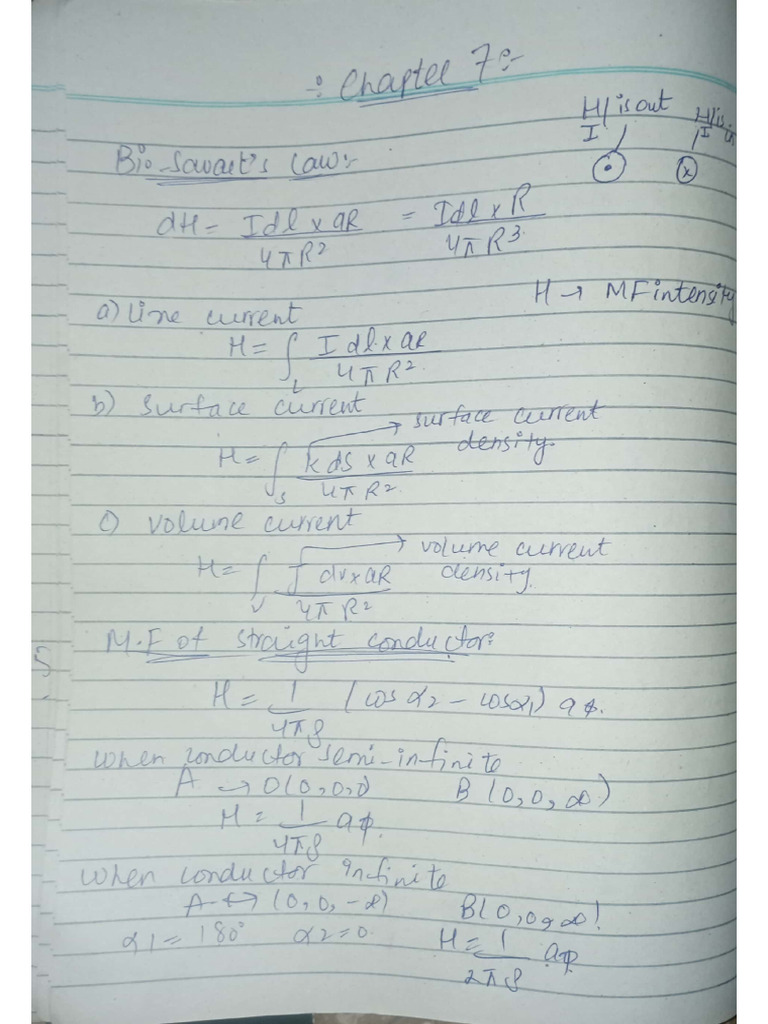 ÷ Chapter 7 :-
H/I is out
H/I is
Bio-Savart's Law:-
dH = Idl x aR / 4πR² = Idl x R / 4πR³
H → MF intensity
a) Line current
H = ∫L I dl x aR / 4πR²
b) Surface current
→ surface current density.
H = ∫s k ds x aR / 4πR²
c) Volume current
→ volume current density.
H = ∫v J dv x aR / 4πR²
M.F of straight conductor:
H = I / 4πρ (cos α2 - cosα1) aφ.
when conductor semi-infinite
A → O(0,0,0) B (0,0,∞)
H = I / 4πρ aφ.
when conductor infinite
A ↔ (0,0,-∞) B(0,0,∞)
α1 = 180° α2 = 0. H = I / 2πρ aφ